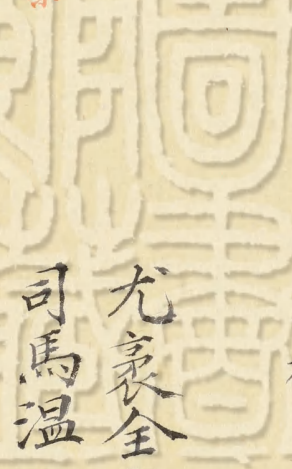 尤袤全
司馬温